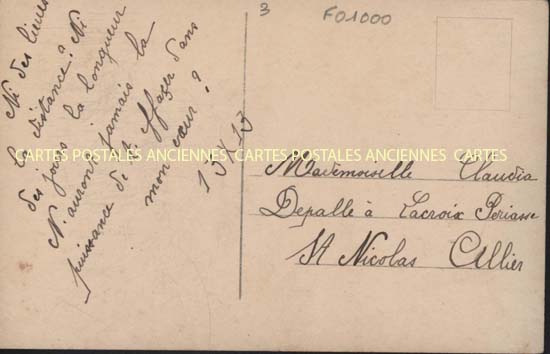 3
FO1000
Ni des lieux
la distance. Ni
des jours la longueur
N'auront jamais la
puissance de t'effaçer dans
mon cœur ?
13 X 13
CARTES POSTALES ANCIENNES CARTES POSTALES ANCIENNES CARTES POSTALES ANCIENNES
Mademoiselle Claudia
Depalle à Lacroix Periasse
St Nicolas Allier